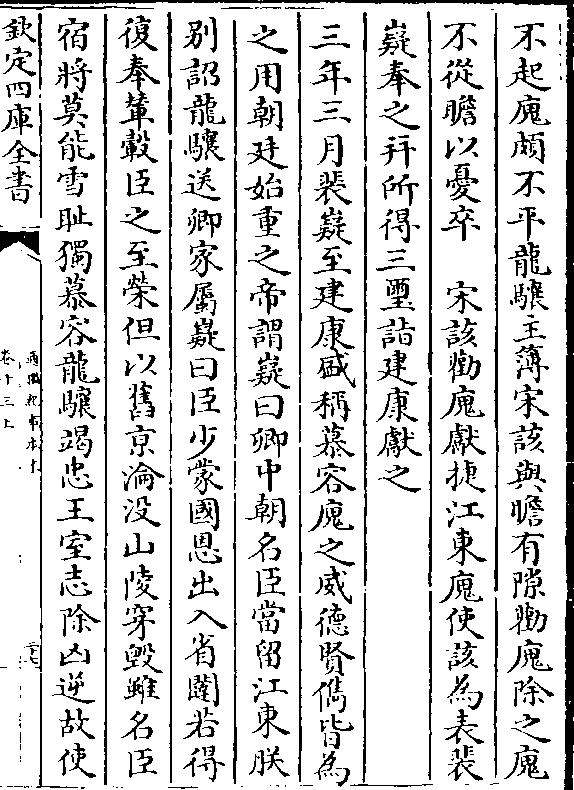 不起廆頗不平龍驤主薄宋該與瞻有隙勸廆除之廆
不從瞻以憂卒　宋該勸廆獻捷江東廆使該為表裴
嶷奉之并所得三璽詣建康獻之
三年三月裴嶷至建康盛稱慕容廆之威德賢儁皆為
之用朝廷始重之帝謂嶷曰卿中朝名臣當留江東朕
别詔龍驤送卿家屬嶷曰臣少蒙國恩出入省闥若得
復奉輦轂臣之至榮但以舊京淪没山陵穿毁雖名臣
宿將莫能雪耻獨慕容龍驤竭忠王室志除凶逆故使
欽定四庫全書
通鑑紀事本末
卷十三上